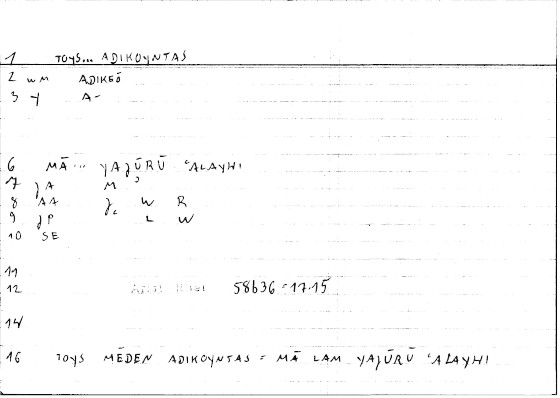 1 TOYS... ADIKOYNTAS
2 wM ADIKEŌ
3 Y A-
6 MĀ... YAJŪRŪ ʿALAYHI
7 JA M ʾ
8 AA J. W R
9 JP L W
10 SE
11
12 58b36 = 17.15
14
16 TOYS MĒDEN ADIKOYNTAS = MĀ LAM YAJŪRŪ ʿALAYHI